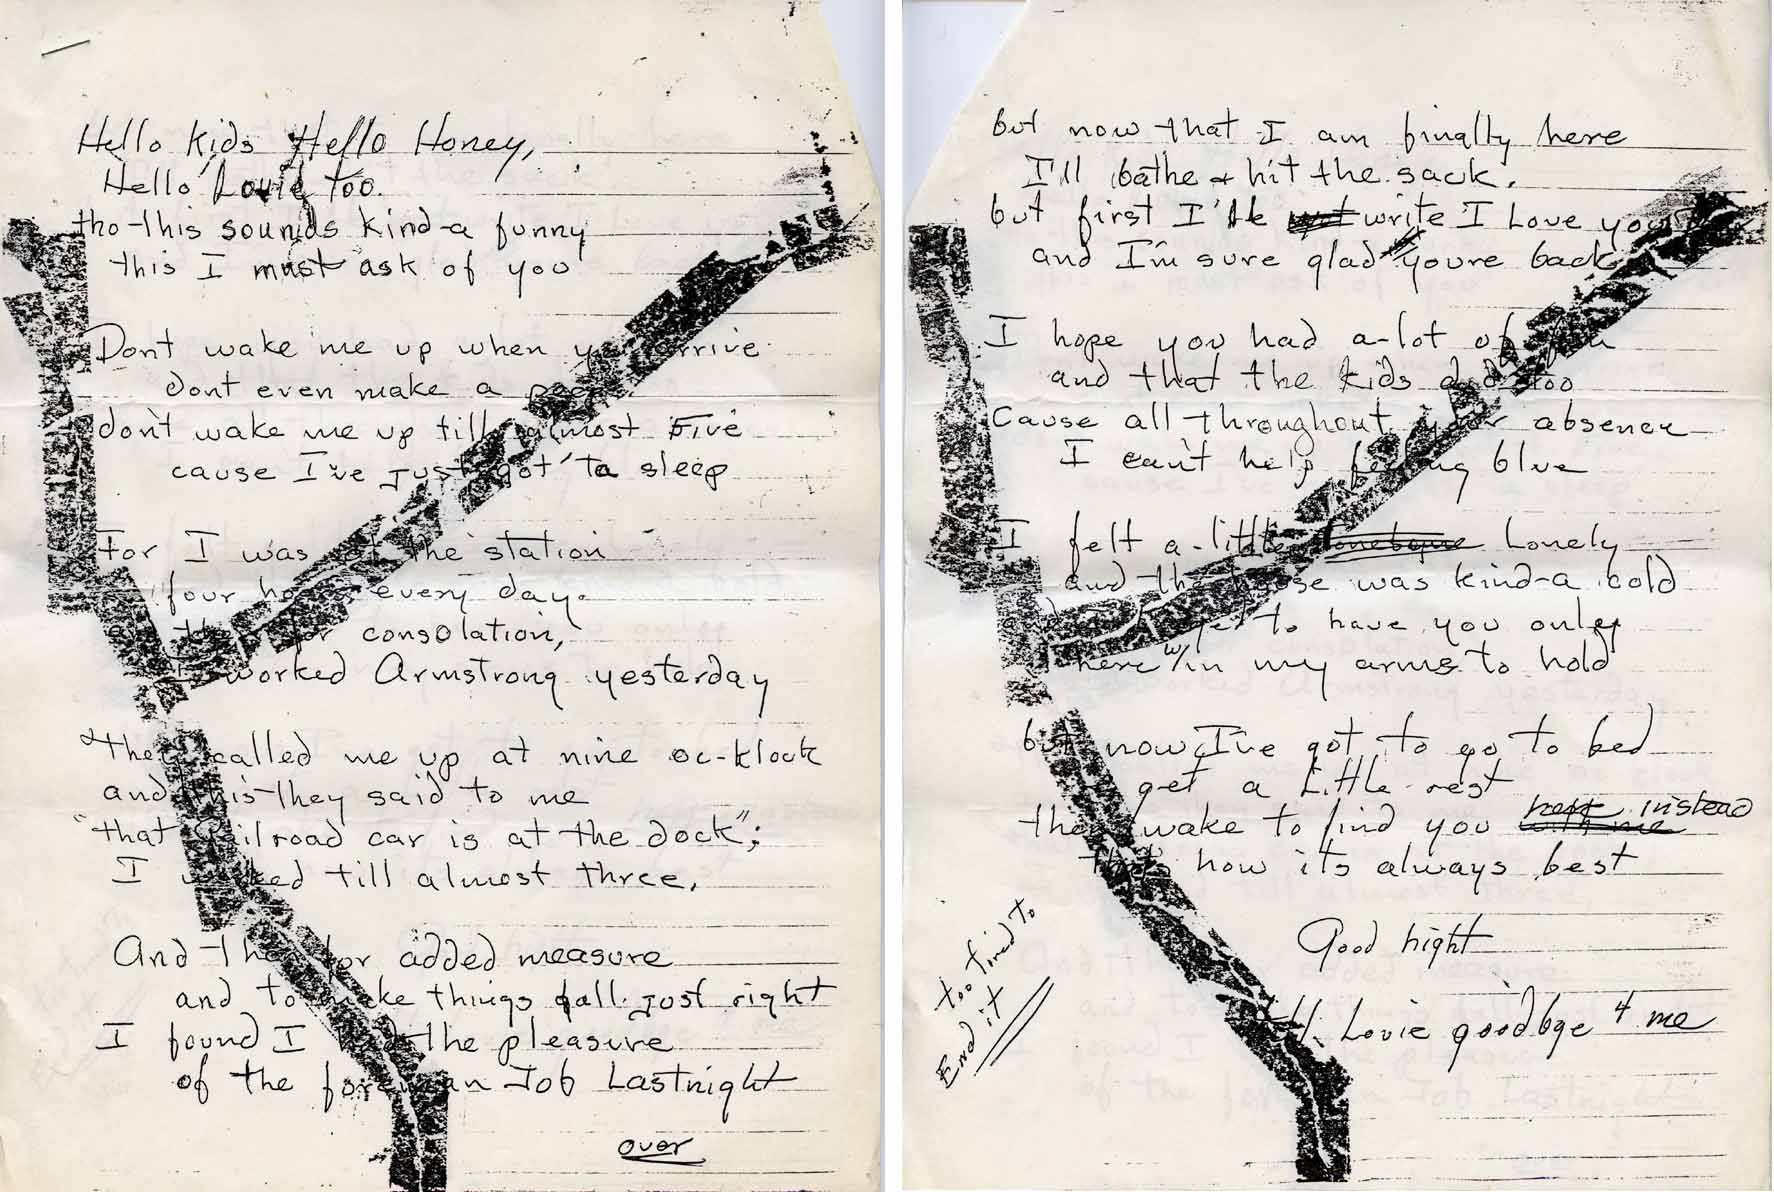 Hello kids Hello Honey,
Hello Louie too.
tho-this sounds kind-a funny
this I must ask of you
Dont wake me up when you arrive
dont even make a peep
don't wake me up till almost Five
cause I've just got ta sleep
For I was at the station
four hours every day.
and then for consolation,
I worked Armstrong yesterday
they called me up at nine oc-klock
and this they said to me
"that Railroad car is at the dock";
I worked till almost three.
And then for added measure
and to make things fall just right
I found I had the pleasure
of the foreman Job Lastnight
over
but now that I am finally here
I'll bathe & hit the sack.
but first I'le write I Love you
and I'm sure glad youre back
I hope you had a-lot of fun
and that the kids did too
Cause all throughout your absence
I can't help feeling blue
I felt a-little Lonely
and the house was kind-a cold
to have you only
here w/in my arms to hold
but now I've got to go to bed
get a little rest
then wake to find you instead
that's how its always best
Good night
Hi Louie goodbye 4 me
too tired to
End it